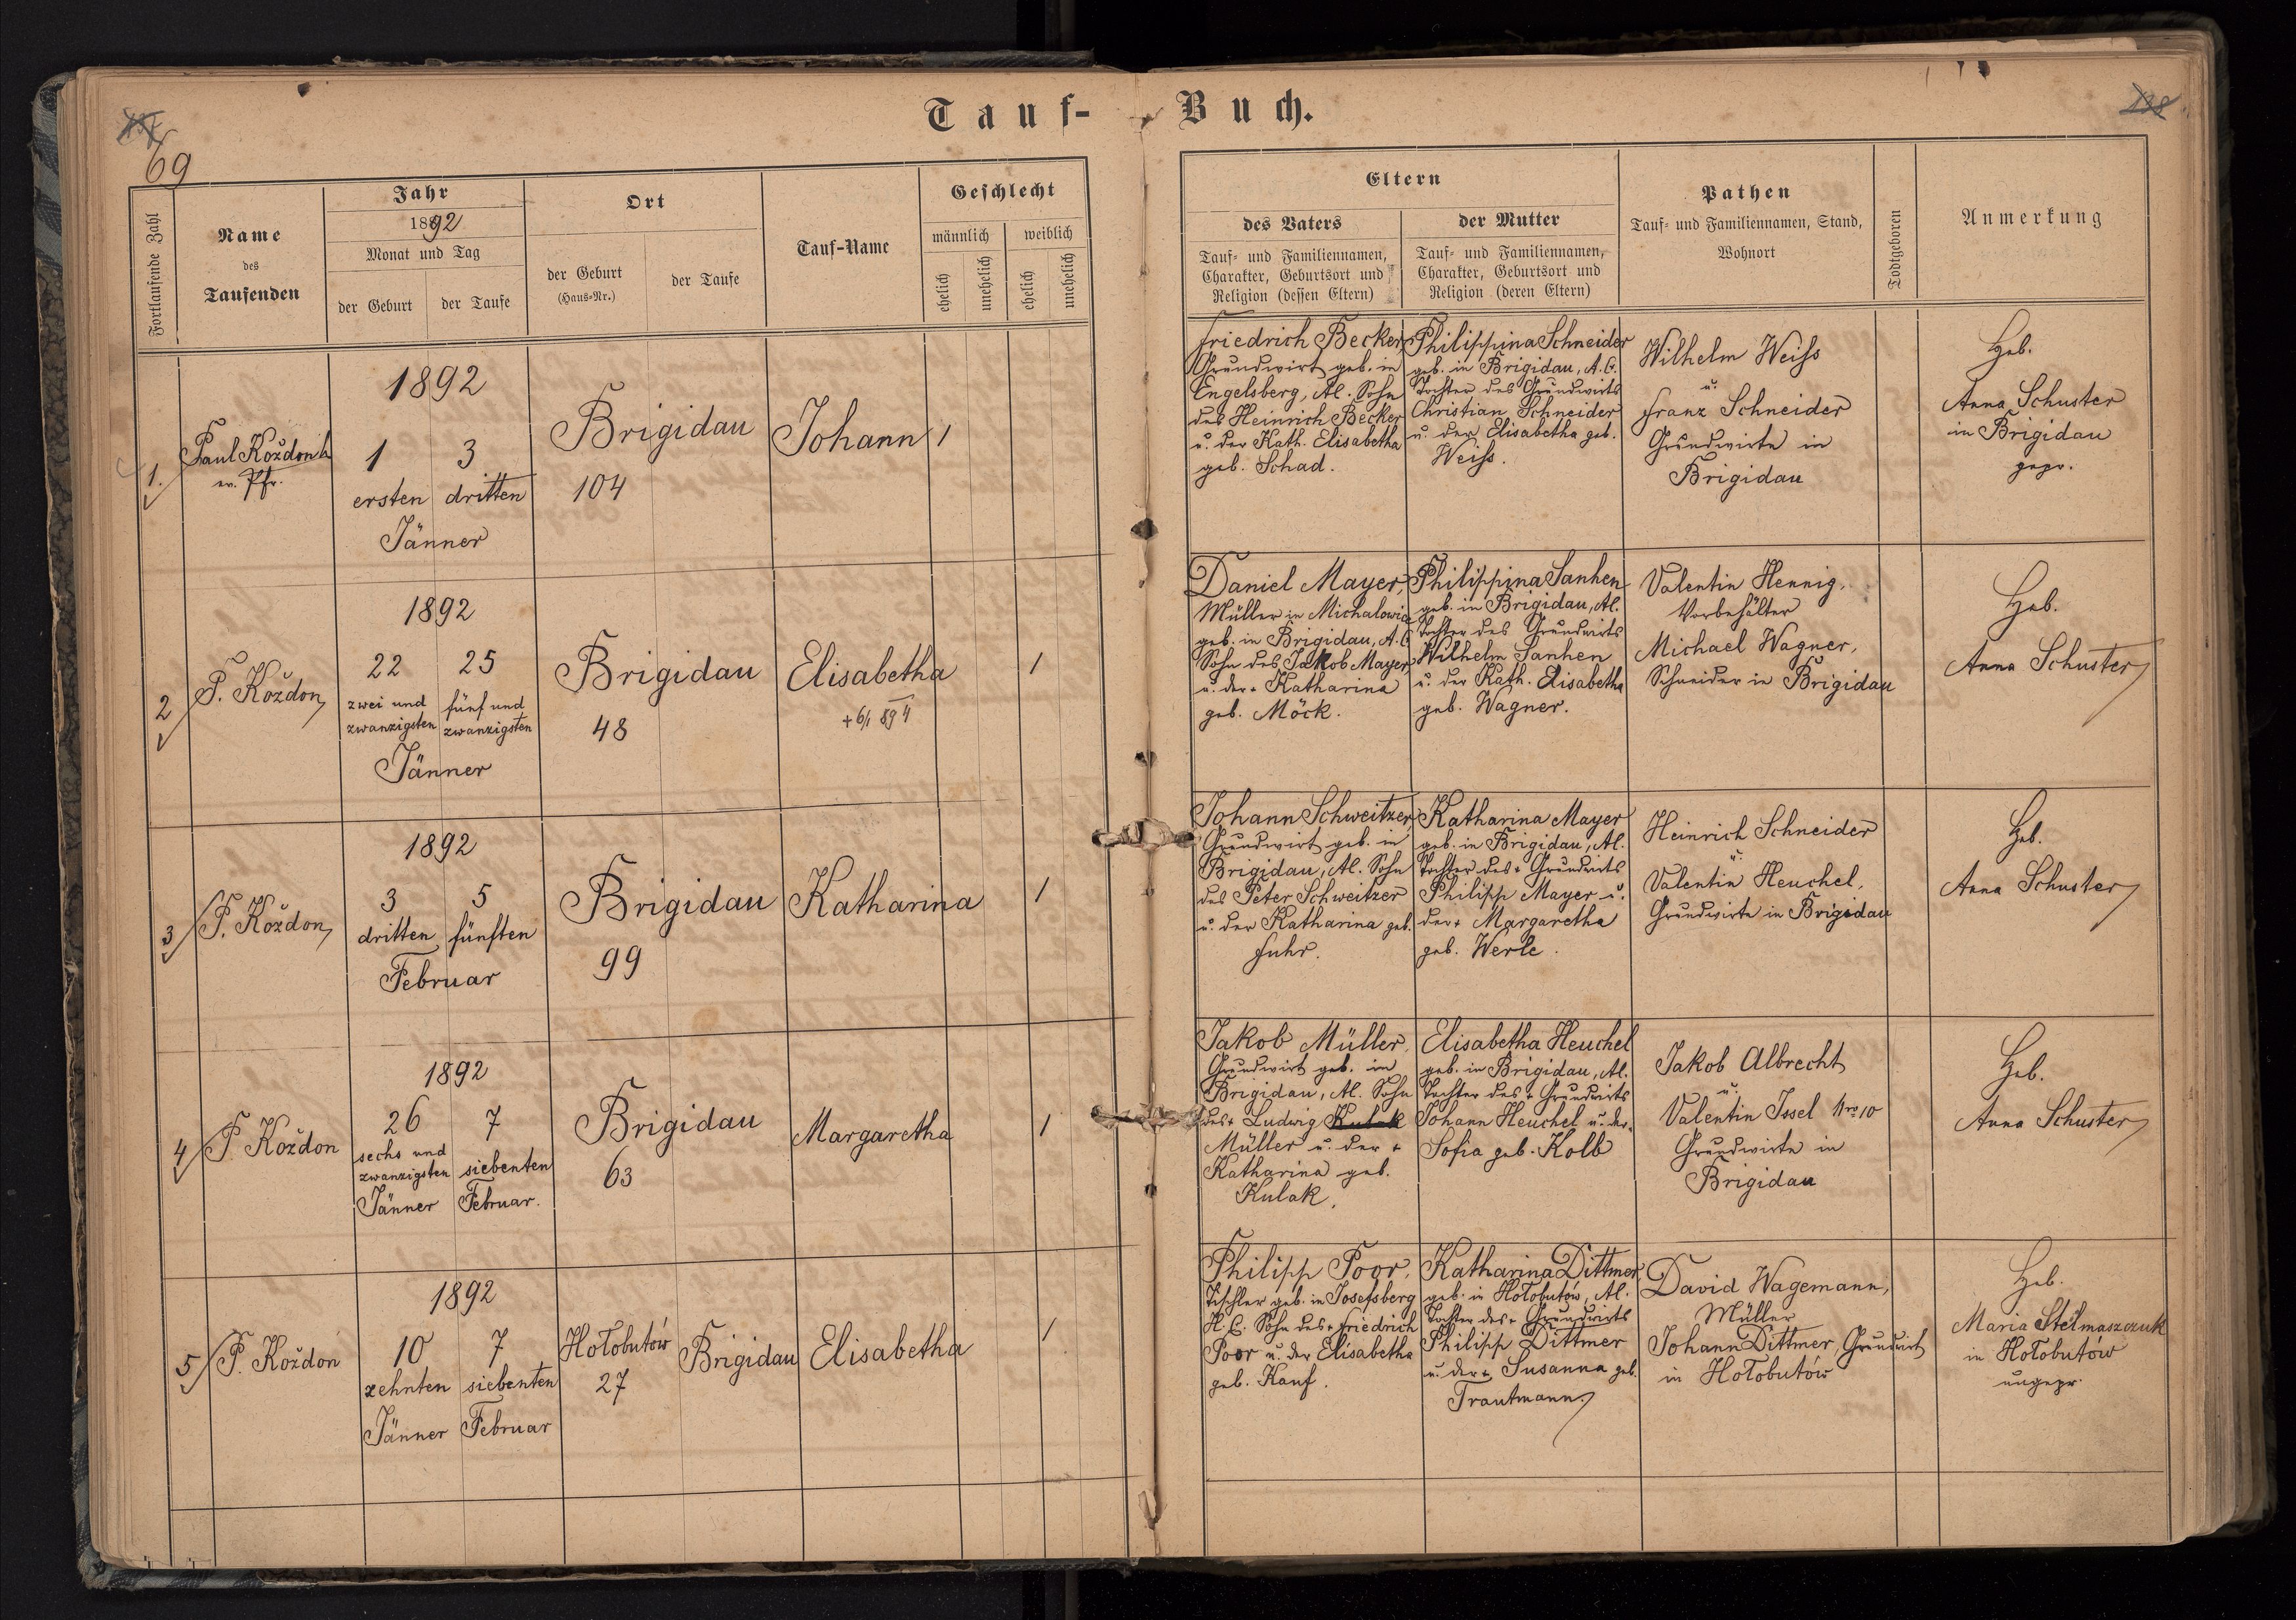 Tauf-Buch.
69
Fortlaufende Zahl
Name
des
Taufenden
Jahr
1892
Monat und Tag
der Geburt
der Taufe
Ort
der Geburt
(Haus-Nr.)
der Taufe
Tauf-Name
Geschlecht
männlich
weiblich
ehelich
unehelich
ehelich
unehelich
Eltern
des Vaters
Tauf- und Familiennamen,
Charakter, Geburtsort und
Religion (dessen Eltern)
der Mutter
Tauf- und Familiennamen,
Charakter, Geburtsort und
Religion (deren Eltern)
Pathen
Tauf- und Familiennamen, Stand,
Wohnort
Todtgeboren
Anmerkung
1.
Paul Koždon
ev. Pfr.
1892
1
ersten
3
dritten
Jänner
Brigidau
104
Johann
1
Friedrich Becker,
Grundwirt geb. in
Engelsberg, A.C. Sohn
des Heinrich Becker
u. der Kath. Elisabetha
geb. Schad.
Philippina Schneider
geb. in Brigidau, A.C.
Tochter des Grundwirts
Christian Schneider
u. der Elisabetha geb.
Weiss.
Wilhelm Weiss
u.
Franz Schneider
Grundwirte in
Brigidau
Heb.
Anna Schuster
in Brigidau
gepr.
2
P. Koždon
1892
22
zwei und
zwanzigsten
25
fünf und
zwanzigsten
Jänner
Brigidau
48
Elisabetha
+ 6/1 894
1
Daniel Mayer,
Müller in
geb. in Brigidau, A.C.
Sohn des Jakob Mayer
u. der + Katharina
geb. Möck.
Philippina Sanhen
geb. in Brigidau, A.C.
Tochter des Grundwirts
Wilhelm Sanhen
u. der Kath. Elisabetha
geb. Wagner.
Valentin Hennig,
Vorbehälter
Michael Wagner,
Schneider in Brigidau
Heb.
Anna Schuster
3
P. Koždon
1892
3
dritten
5
fünften
Februar
Brigidau
99
Katharina
1
Johann Schweitzer
Grundwirt geb. in
Brigidau, A.C. Sohn
des Peter Schweitzer
u. der Katharina geb.
Fuhr.
Katharina Mayer
geb. in Brigidau, A.C.
Tochter des + Grundwirts
Philipp Mayer u.
der + Margaretha
geb. Werle.
Heinrich Schneider
u.
Valentin Heuchel,
Grundwirte in Brigidau
Heb.
Anna Schuster
4
P. Koždon
1892
26
sechs und
zwanzigsten
Jänner
7
siebenten
Februar.
Brigidau
63
Margaretha
1
Jakob Müller,
Grundwirt geb. in
Brigidau, A.C. Sohn
des + Ludwig Kulak
Müller u. der +
Katharina geb.
Kulak.
Elisabetha Heuchel
geb. in Brigidau, A.C.
Tochter des + Grundwirts
Johann Heuchel u. der
Sofia geb. Kolb
Jakob Albrecht
u.
Valentin Issel Nro 10
Grundwirte in
Brigidau
Heb.
Anna Schuster
5
P. Koždon
1892
10
zehnten
Jänner
7
siebenten
Februar
Hołobutów
27
Brigidau
Elisabetha
1
Philipp Poor,
Tischler geb. in Josefsberg
H.C. Sohn des + Friedrich
Poor u. der Elisabetha
geb. Kauf.
Katharina Dittmer
geb. in Hołobutów, A.C.
Tochter des + Grundwirts
Philipp Dittmer
u. der + Susanna geb.
Trautmann.
David Wagemann,
Müller
Johann Dittmer, Grundwirt
in Hołobutów
Heb.
Maria Stelmaszczuk
in Hołobutów
ungepr.